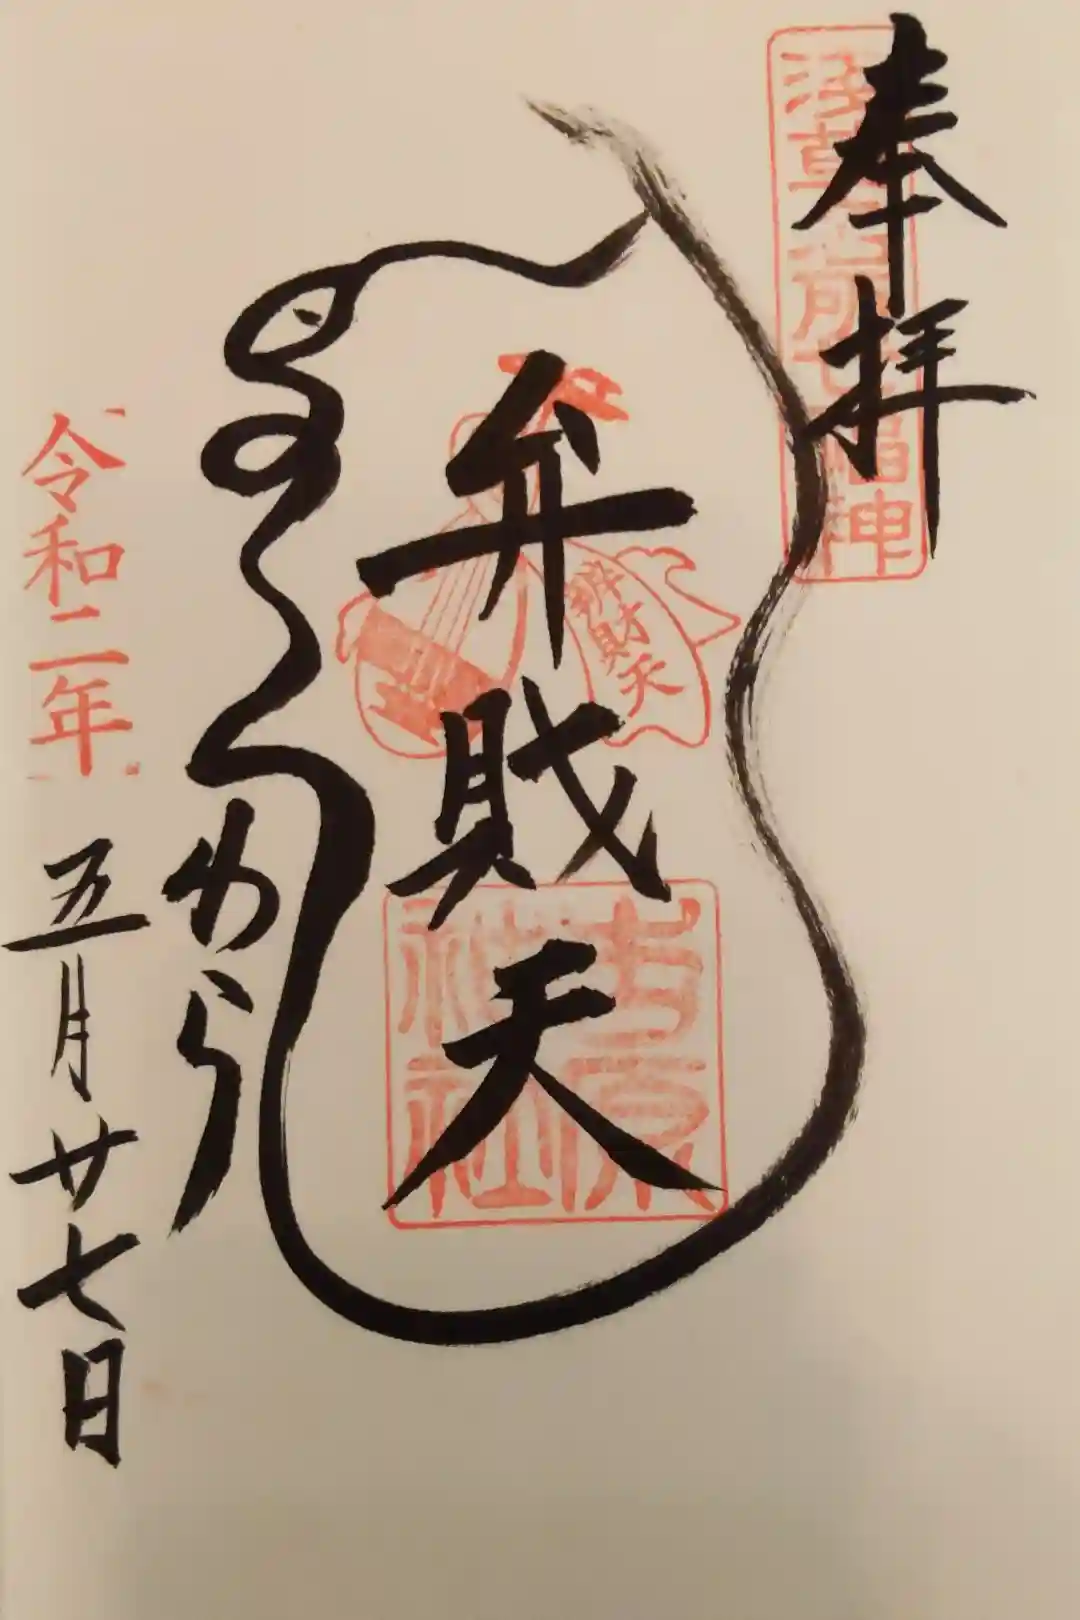 奉拝
浅草名所七福神
弁財天
辨財天
吉原神社
よしわら
令和二年
五月廿七日